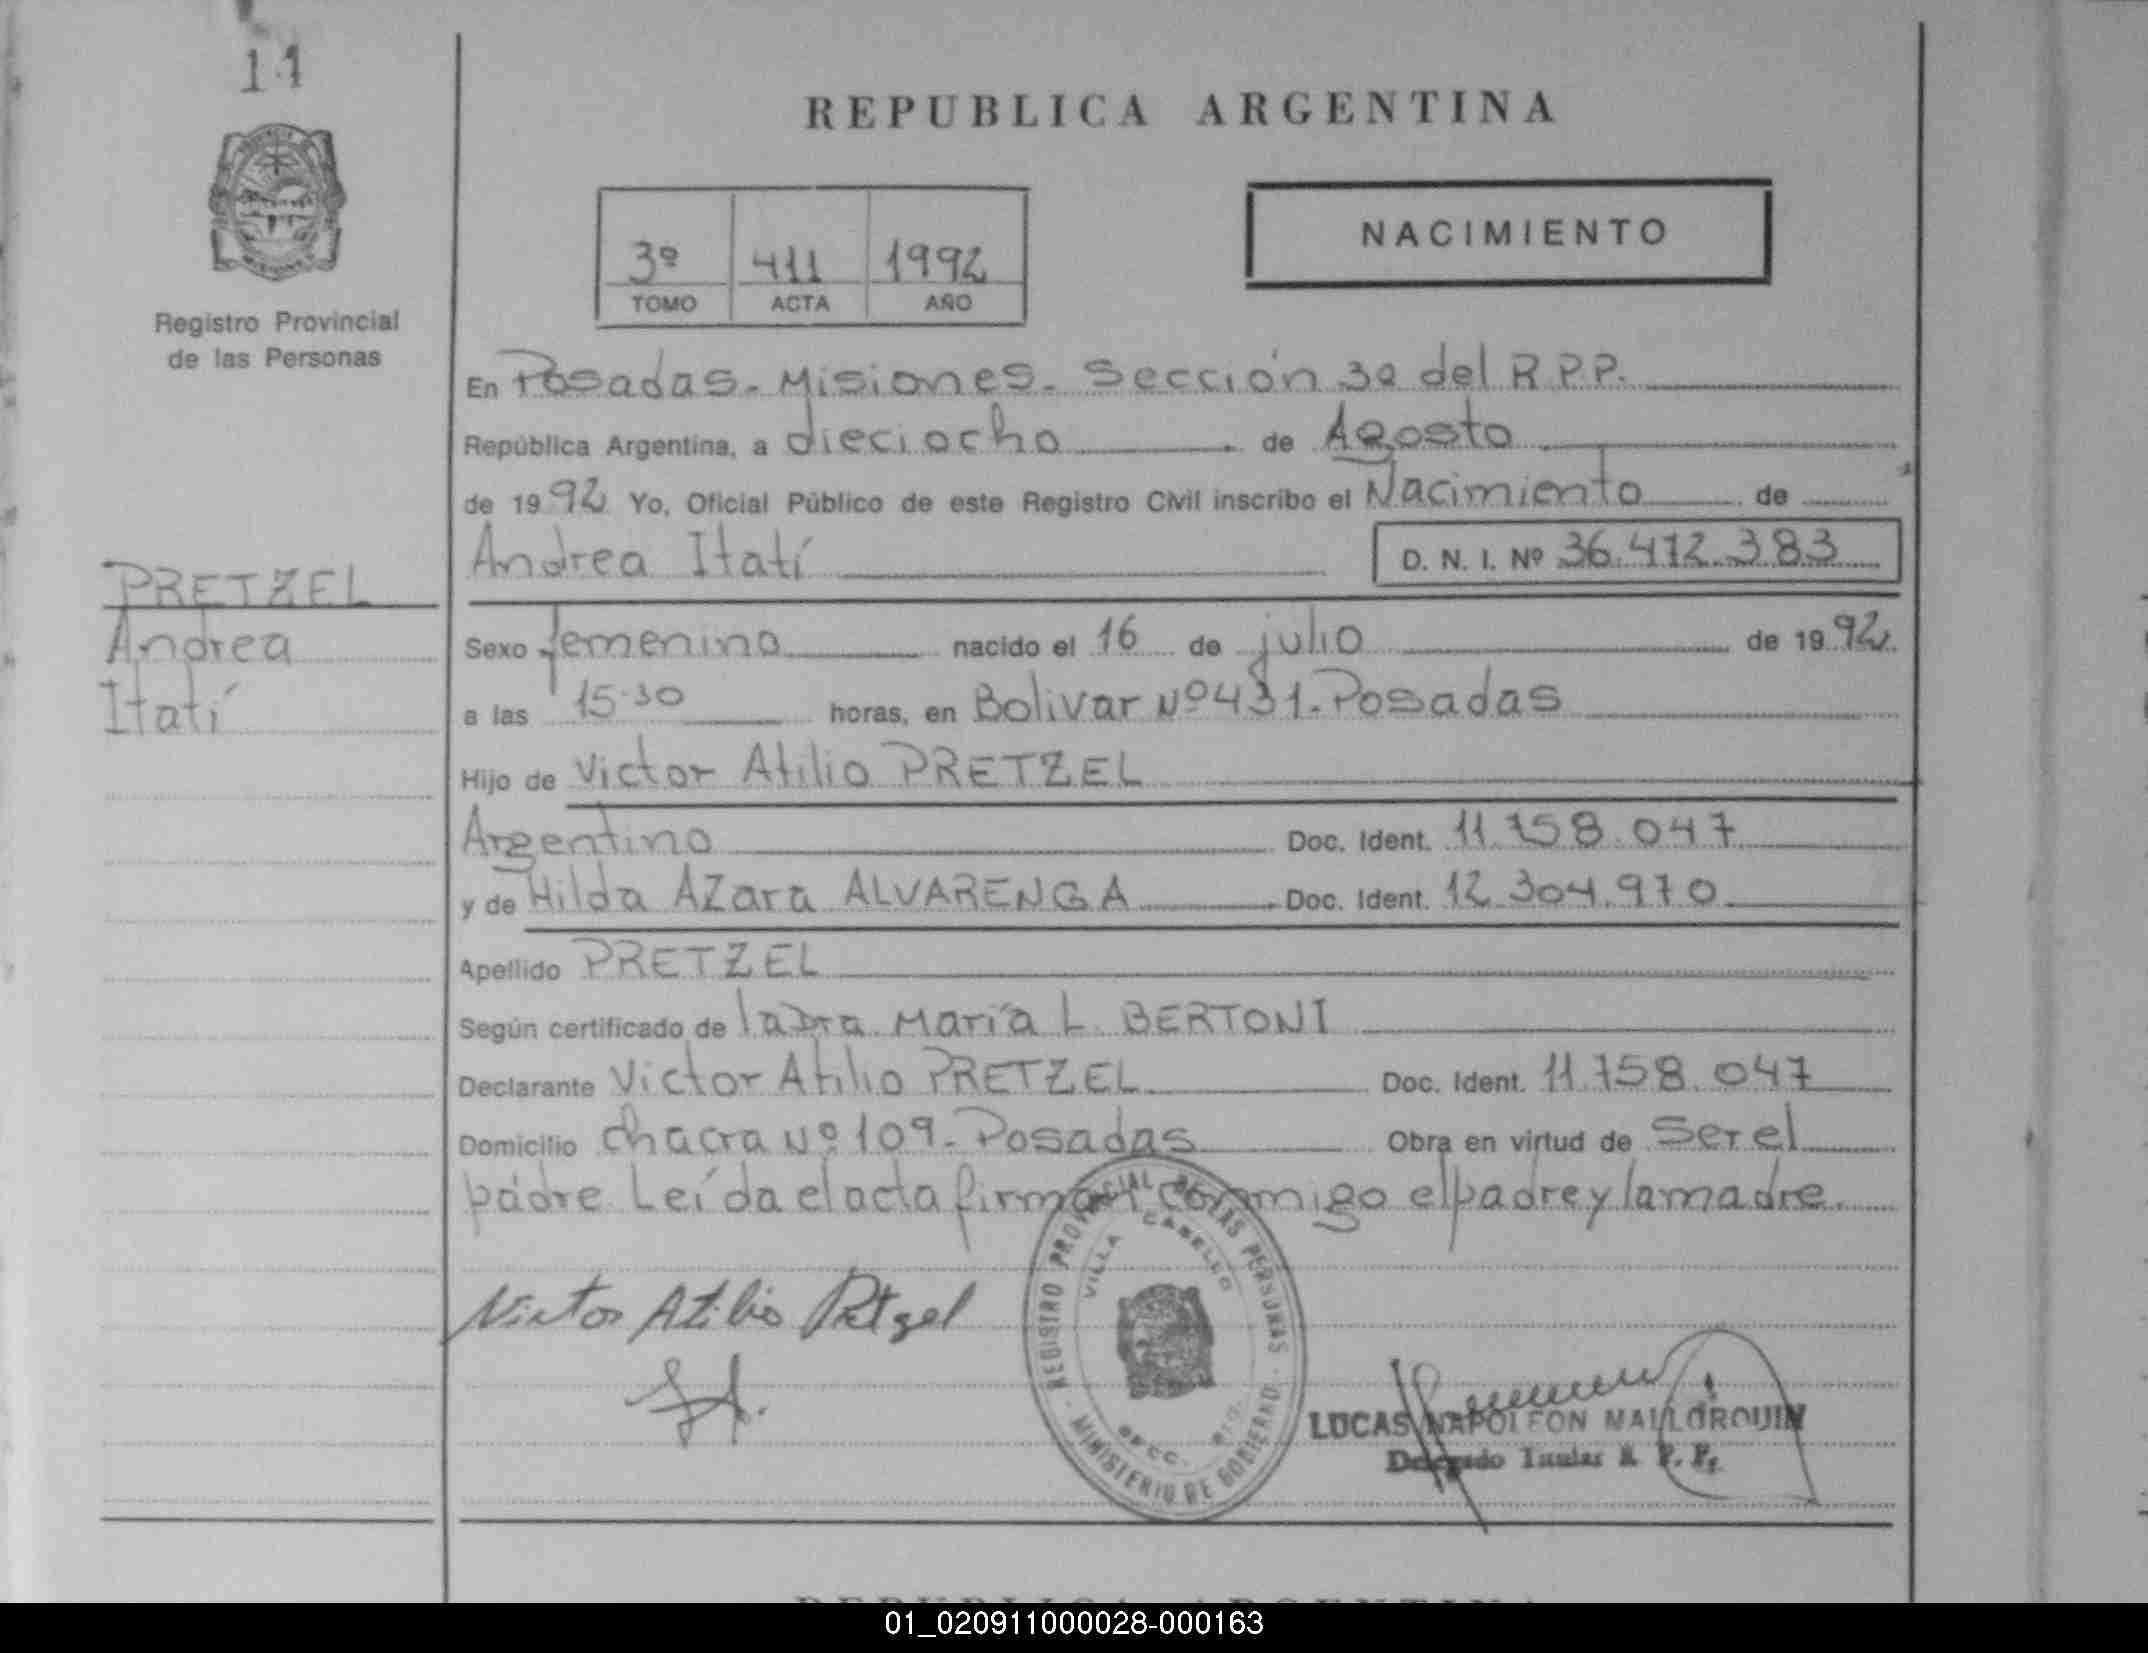 11
REPUBLICA ARGENTINA
NACIMIENTO
3º 411 1992
TOMO ACTA AÑO
Registro Provincial
de las Personas
En Posadas - Misiones - Sección 3a del R.P.P.
República Argentina, a dieciocho de Agosto
de 1992 Yo, Oficial Público de este Registro Civil inscribo el Nacimiento de
Andrea Itatí D. N. I. Nº 36.412.383
PRETZEL
Andrea
Itatí
Sexo femenino nacido el 16 de julio de 1992
a las 15.30 horas, en Bolivar Nº 431. Posadas
Hijo de Victor Atilio PRETZEL
Argentino Doc. Ident. 11.758.047
y de Hilda Azara ALVARENGA Doc. Ident. 12.304.970
Apellido PRETZEL
Según certificado de la Dra. María L. BERTONI
Declarante Victor Atilio PRETZEL Doc. Ident. 11.758.047
Domicilio chacra Nº 109 - Posadas Obra en virtud de ser el
padre. Leída el acta firman conmigo el padre y la madre.
REGISTRO PROVINCIAL DE LAS PERSONAS
VILLA CABELLO
MINISTERIO DE GOBIERNO
Victor Atilio Pretzel
LUCAS NAPOLEON MALLORQUIN
Delegado Titular R. P. P.
REPUBLICA ARGENTINA
01_020911000028-000163